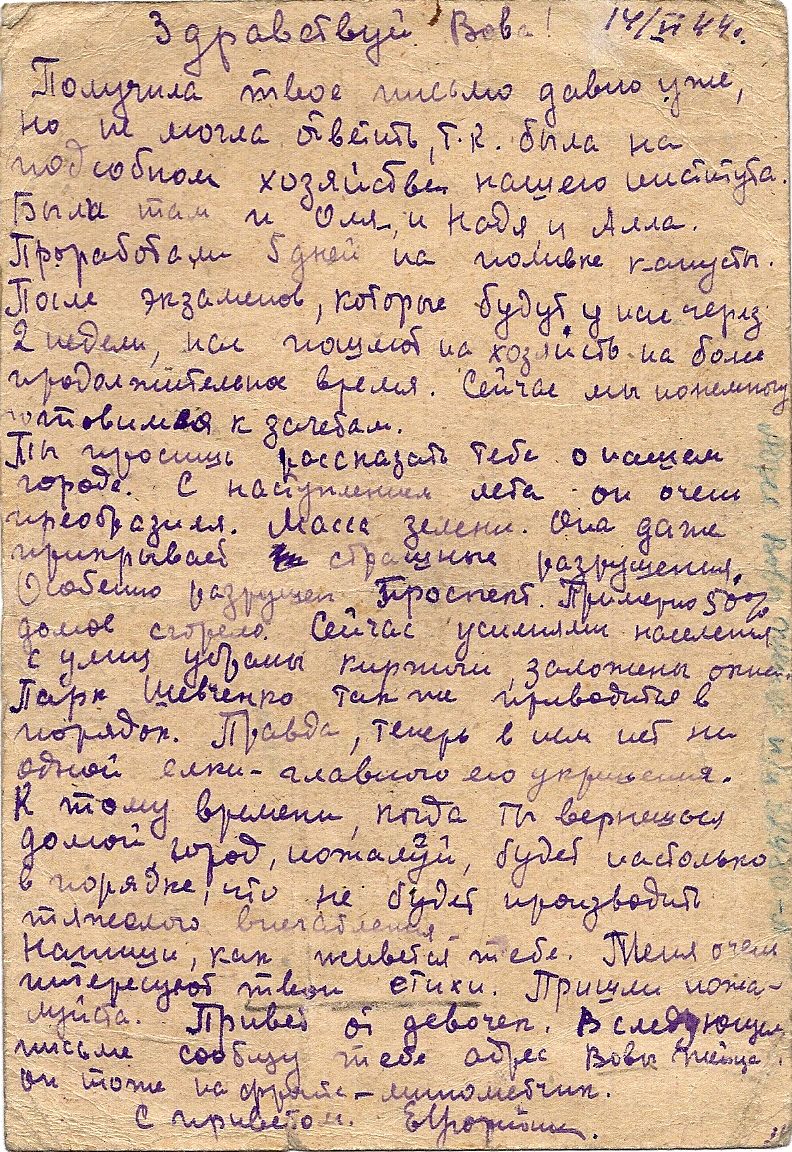 Здравствуй Вова! 14/VI 44г.
Получила твое письмо давно уже,
но не могла ответить, т.к. была на
подсобном хозяйстве нашего института.
Была там и Оля, и Надя и Алла.
Проработали 5 дней на поливке капусты.
После экзаменов, которые будут у нас через
2 недели, нас пошлют на хозяйств на более
продолжительное время. Сейчас мы понемногу
готовимся к зачетам.
Ты просишь рассказать тебе о нашем
городе. С наступлением лета он очень
преобразился. Масса зелени. Она даже
прикрывает страшные разрушения.
Особенно разрушен Проспект. Примерно 50%
домов сгорело. Сейчас усилиями населения
с улиц убраны кирпичи, заложены окна.
Парк Шевченко так же приводится в
порядок. Правда, теперь в нем нет ни
одной елки - главного его украшения.
К тому времени, когда ты вернешься
домой, город, пожалуй, будет настолько
в порядке, что не будет производить
тяжелого впечатления
Напиши, как живется тебе. Меня очень
интересуют твои стихи. Пришли пожа-
луйста. Привет от девочек. В следующем
письме сообщу тебе адрес Вовы
он тоже на фронте - минометчик.
С приветом.